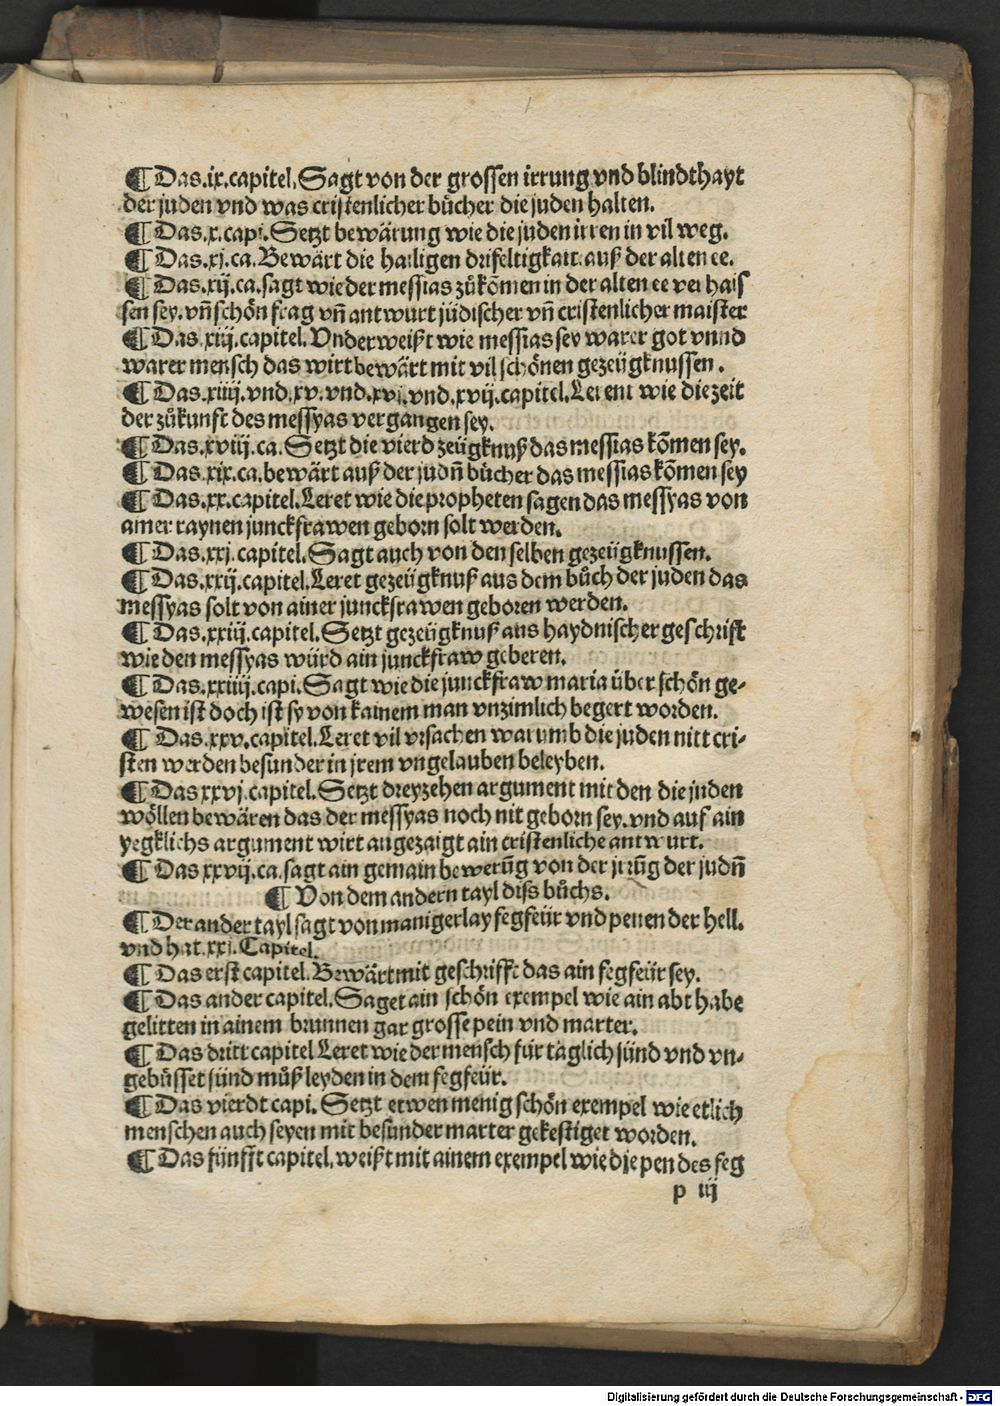 ¶ Das.ix.capitel.Sagt von der grossen irrung vnd blindthayt
der juden vnd was cristenlicher bůcher die juden halten.
¶ Das.x.capi.Setzt bewärung wie die juden irren in vil weg.
¶ Das.xj.ca.Bewärt die hailigen drifeltigkait auß der alten ee.
¶ Das.xij.ca.sagt wie der messias zůkõmen in der alten ee verhais
sen sey.vñ schön frag vñ antwurt jüdischer vñ cristenlicher maister
¶ Das.xiij.capitel.Vnderweißt wie messias sey warer got vnnd
warer mensch das wirt bewärt mit vil schönen gezeügknussen.
¶ Das.xiiij.vnd.xv.vnd.xvj.vnd.xvij.capitel.Lerent wie die zeit
der zůkunft des messyas vergangen sey.
¶ Das.xviij.ca.Setzt die vierd zeügknuß das messias kõmen sey.
¶ Das.xix.ca.bewärt auß der judñ bůcher das messias kõmen sey
¶ Das.xx.capitel.Leret wie die propheten sagen das messyas von
ainer raynen junckfrawen geborn solt werden.
¶ Das.xxj.capitel.Sagt auch von den selben gezeügknussen.
¶ Das.xxij.capitel.Leret gezeügknuß aus dem bůch der juden das
messyas solt von ainer junckfrawen geboren werden.
¶ Das.xxiij.capitel.Setzt gezeügknuß aus haydnischer geschrift
wie den messyas würd ain junckfraw geberen.
¶ Das.xxiiij.capi.Sagt wie die junckfraw maria über schön ge-
wesen ist doch ist sy von kainem man vnzimlich begert worden.
¶ Das.xxv.capitel.Leret vil vrsachen warumb die juden nitt cri-
sten werden besunder in jrem vngelauben beleyben.
¶ Das xxvj.capitel.Setzt dreyzehen argument mit den die juden
wöllen bewären das der messyas noch nit geborn sey.vnd auf ain
yegklichs argument wirt angezaigt ain cristenliche antwurt.
¶ Das xxvij.ca.sagt ain gemain bewerũg von der jrrũg der judñ
¶ Von dem andern tayl diss bůchs.
¶ Der ander tayl sagt von manigerlay fegfeür vnd penen der hell.
vnd hat.xxj.Capitel.
¶ Das erst capitel.Bewärt mit geschrifft das ain fegfeür sey.
¶ Das ander capitel.Saget ain schön exempel wie ain abt habe
gelitten in ainem brunnen gar grosse pein vnd marter.
¶ Das dritt capitel Leret wie der mensch für täglich sünd vnd vn-
gebüsset sünd můß leyden in dem fegfeür.
¶ Das vierdt capi. Setzt etwen menig schön exempel wie etlich
menschen auch seyen mit besunder marter gekestiget worden.
¶ Das fünfft capitel.weißt mit ainem exempel wie die pen des feg
p iij
Digitalisierung gefördert durch die Deutsche Forschungsgemeinschaft - DFG